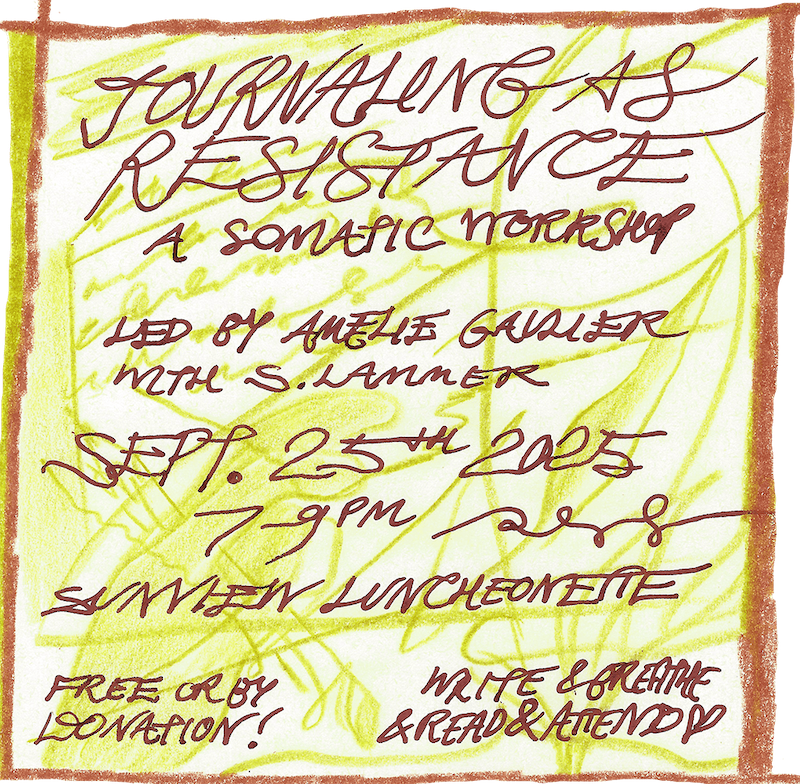 JOURNALING AS
RESISTANCE
A SOMATIC WORKSHOP
LED BY AMELIE GAULIER
WITH S. LAMMER
SEPT. 25TH 2025
7-9PM
SUNVIEW LUNCHEONETTE
FREE OR BY
DONATION!
WRITE & BREATHE
& READ & ATTEND